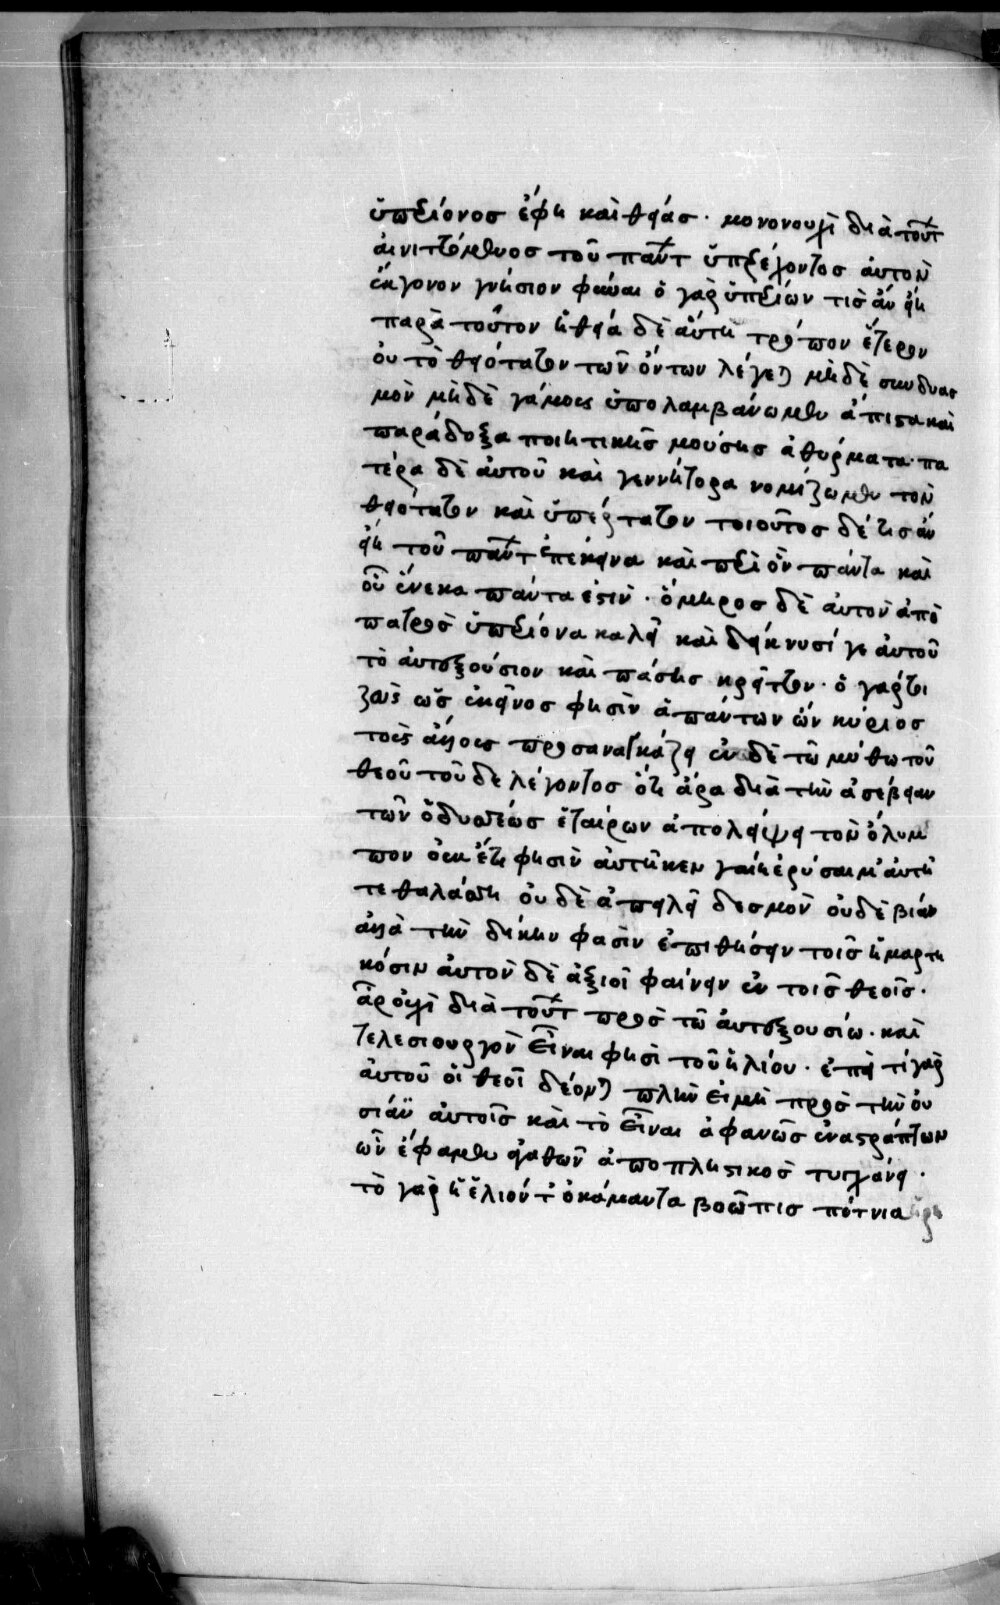 ὑπερίονος ἔφη καὶ θείας · μονονουχὶ διὰ τούτ
αἰνιττόμενος τοῦ παντ ὑπερέχοντος αὐτὸν
ἔκγονον γνήσιον φῦναι ὁ γὰρ ὑπερίων τίς ἂν εἴη
παρὰ τοῦτον ἡ θεία δὲ αὕτη τρόπον ἕτερον
οὐ τὸ θειότατον τῶν ὄντων λέγεται μὴ δὲ συνδυασ
μὸν μὴ δὲ γάμους ὑπολαμβάνωμεν ἄπιστα καὶ
παράδοξα ποιητικῆς μούσης ἀθύρματα· πα
τέρα δὲ αὐτοῦ καὶ γεννήτορα νομίζωμεν τὸν
θειότατον καὶ ὑπέρτατον τοιοῦτος δέ τις ἂν
εἴη τοῦ παντ ἐπέκεινα καὶ περὶ ὃν πάντα καὶ
οὗ ἕνεκα πάντα ἐστίν · ὅμηρος δὲ αὐτὸν ἀπὸ
πατρὸς ὑπερίονα καλεῖ καὶ δείκνυσί γε αὐτοῦ
τὸ αὐτεξούσιον καὶ πάσης κρεῖττον · ὁ γάρ τοι
ζεὺς ὡς ἐκεῖνος φησὶν ἁπάντων ὢν κύριος
τοὺς ἄλλους προσαναγκάζει ἐν δὲ τῶ μύθω τοῦ
θεοῦ τοῦ δε λέγοντος ὅτι ἄρα διὰ τὴν ἀσέβειαν
τῶν ὀδυσσέως ἑταίρων ἀπολείψει τὸν ὄλυμ
πον οὐκ ἔτι φησὶν αὐτῆ κεν γαίη ἐρύσαιμ' αὐτῆ
τε θαλάσση οὐ δὲ ἀπειλεῖ δεσμὸν οὐδὲ βίαν
ἀλλὰ τὴν δίκην φασὶν ἐπιθήσειν τοῖς ἡμαρτη
κόσιν αὐτὸν δὲ ἀξιοῖ φαίνειν ἐν τοῖς θεοῖς ·
ἆρ οὐχὶ διὰ τούτ πρὸς τῶ αὐτεξουσίω · καὶ
τελεσιουργὸν εἶναι φησὶ τοῦ ἡλίου · ἐπεὶ τί γὰρ
αὐτοῦ οἱ θεοὶ δέονται πλὴν εἰ μὴ πρὸς τὴν οὐ
σίαν αὐτοῖς καὶ τὸ εἶναι ἀφανῶς ἐναστράπτων
ὧν ἔφαμεν ἀγαθῶν ἀποπληστικὸς τυγχάνει ·
τὸ γὰρ ἠέλιόν τ ἀκάμαντα βοῶπις πότνια ἥρη